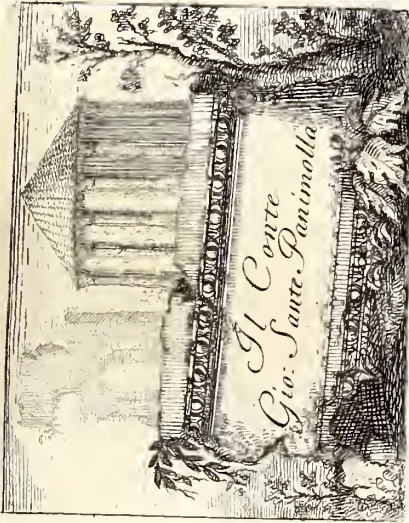 Il Conte
Gio: Sante Panimolla